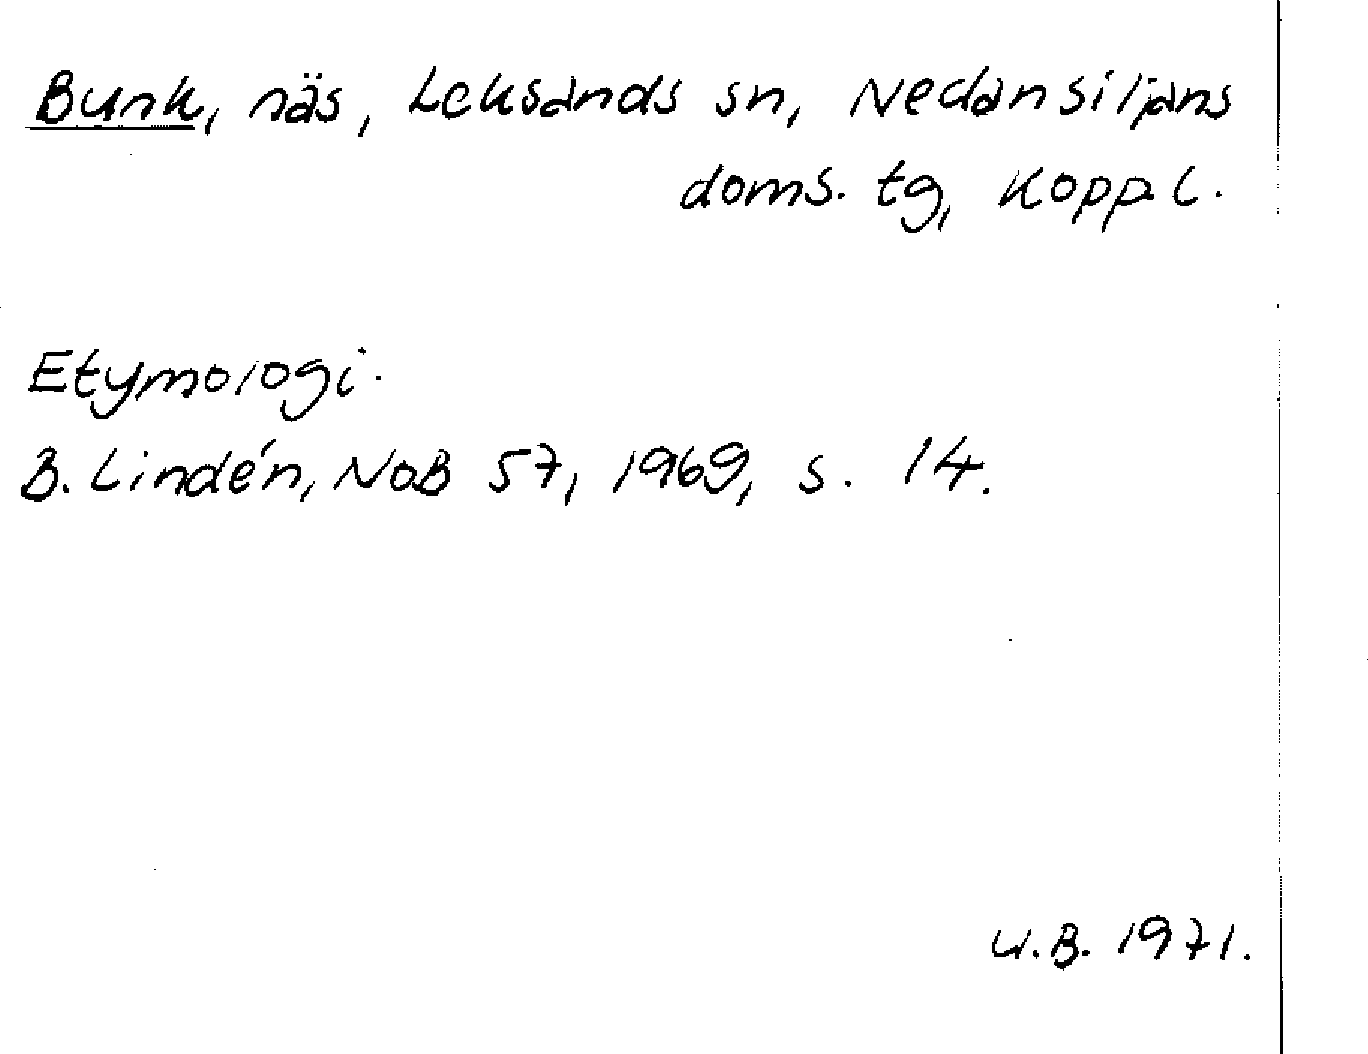 Bunk, näs, Leksands sn, Nedansiljans
doms. tg, Kopp. l.
Etymologi.
B. Lindén, NoB 57, 1969, s. 14.
U.B. 1971.